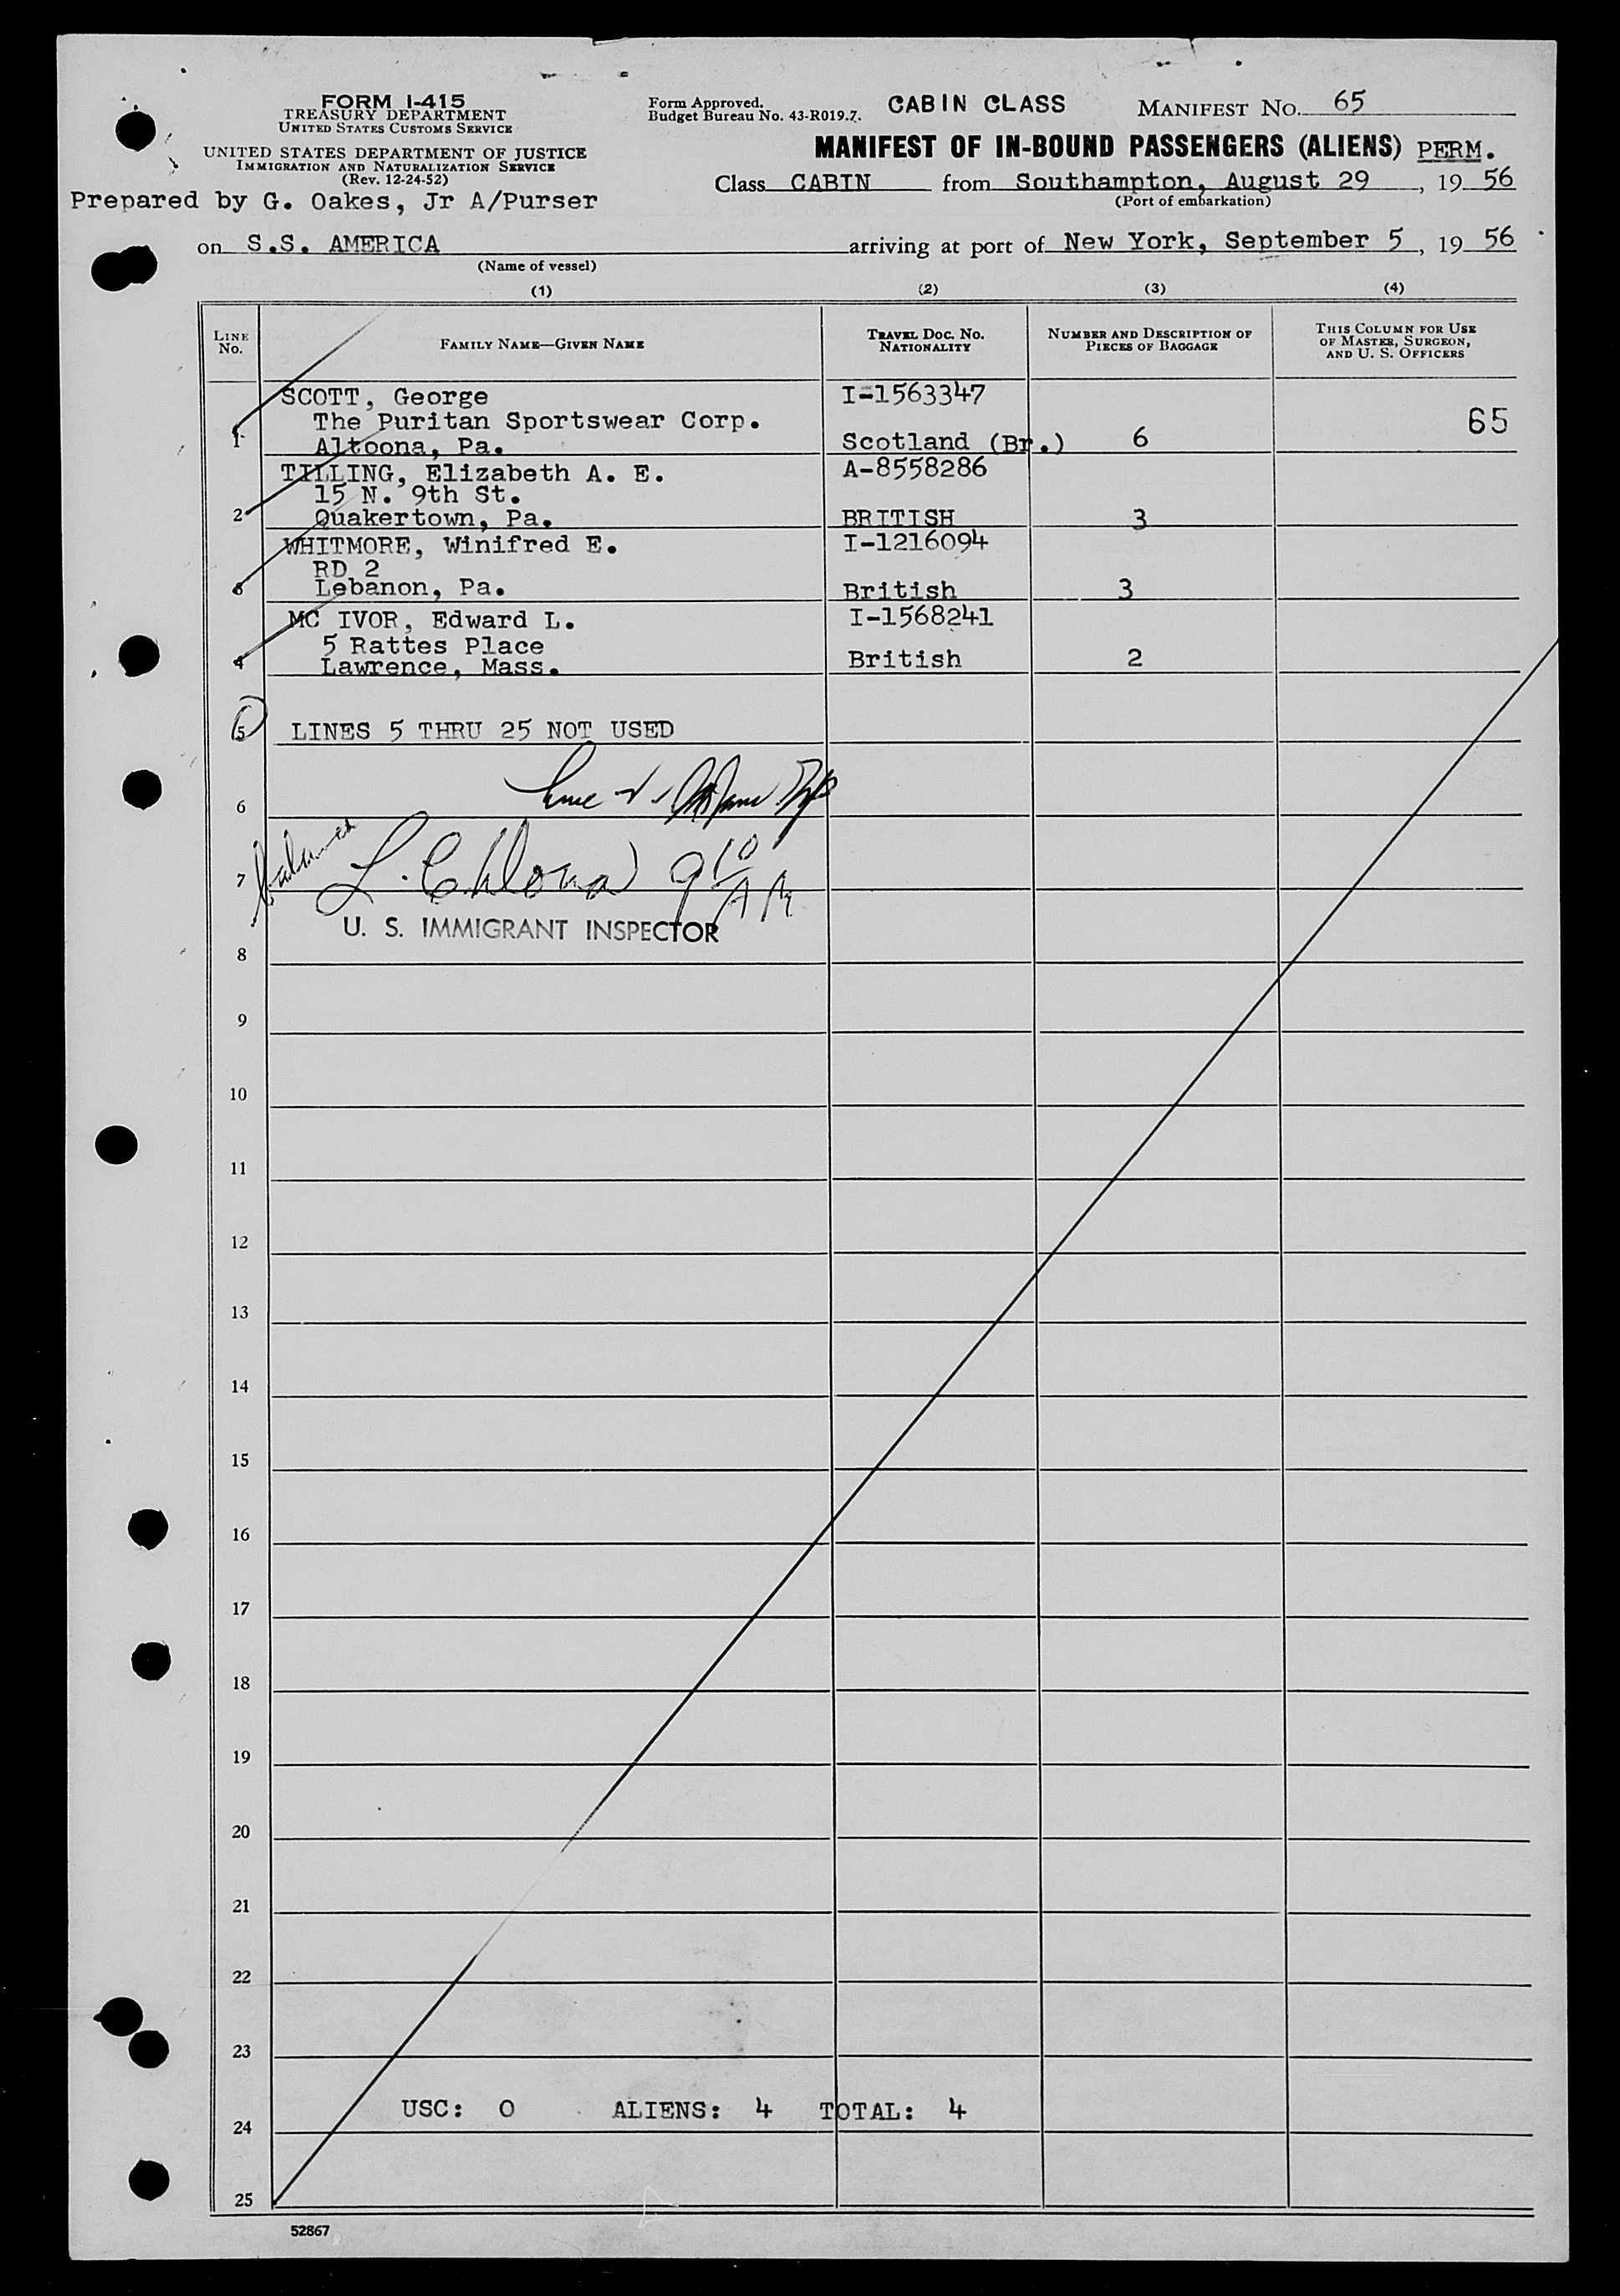 FORM I-415
TREASURY DEPARTMENT
UNITED STATES CUSTOMS SERVICE
UNITED STATES DEPARTMENT OF JUSTICE
IMMIGRATION AND NATURALIZATION SERVICE
(Rev. 12-24-52)
Prepared by G. Oakes, Jr A/Purser
Form Approved.
Budget Bureau No. 43-R019.7.
CABIN CLASS
MANIFEST No. 65
MANIFEST OF IN-BOUND PASSENGERS (ALIENS) PERM.
Class CABIN from Southampton, August 29, 19 56
(Port of embarkation)
on S.S. AMERICA arriving at port of New York, September 5, 19 56
(Name of vessel)
(1) (2) (3) (4)
LINE No.
FAMILY NAME—GIVEN NAME
TRAVEL DOC. NO. NATIONALITY
NUMBER AND DESCRIPTION OF PIECES OF BAGGAGE
THIS COLUMN FOR USE OF MASTER, SURGEON, AND U. S. OFFICERS
SCOTT, George I-1563347
The Puritan Sportswear Corp. 65
1 Altoona, Pa. Scotland (Br.) 6
TILLING, Elizabeth A. E. A-8558286
15 N. 9th St.
2 Quakertown, Pa. BRITISH 3
WHITMORE, Winifred E. I-1216094
RD 2
3 Lebanon, Pa. British 3
MC IVOR, Edward L. I-1568241
5 Rattes Place
4 Lawrence, Mass. British 2
5 LINES 5 THRU 25 NOT USED
6
7 L. 9 10 AM
U. S. IMMIGRANT INSPECTOR
8
9
10
11
12
13
14
15
16
17
18
19
20
21
22
23
USC: 0 ALIENS: 4 TOTAL: 4
24
25
52867